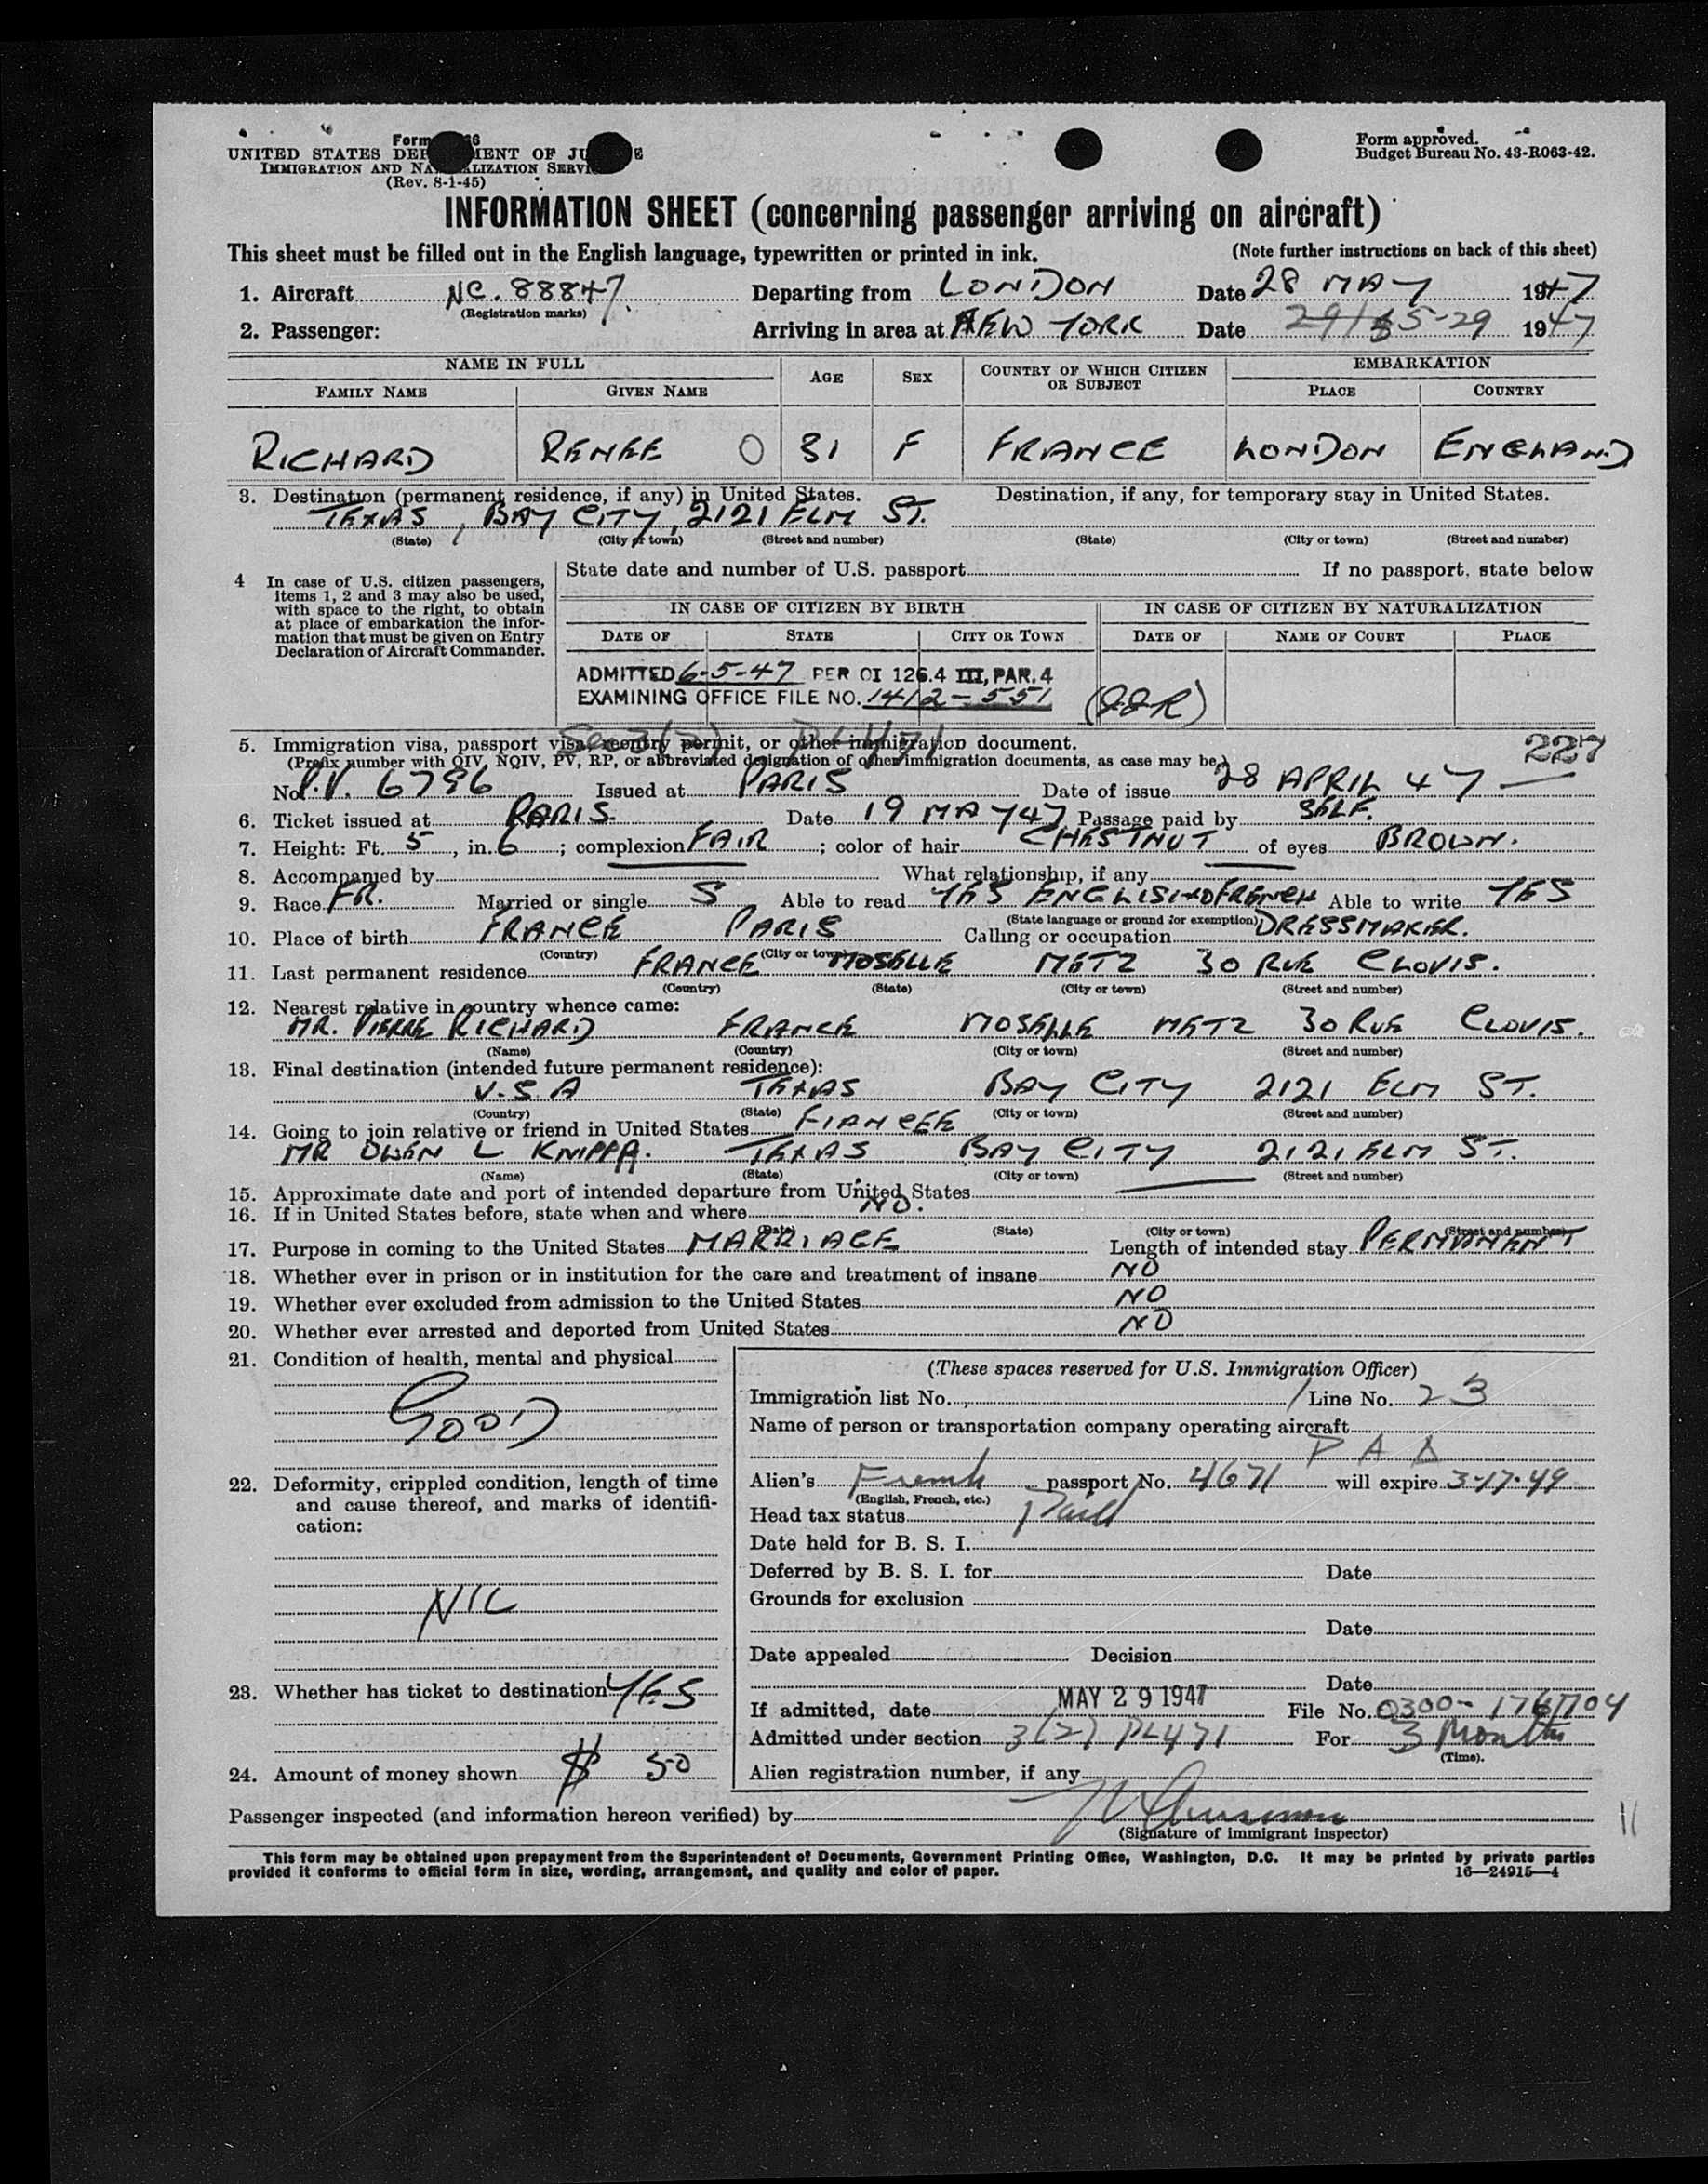 Form
UNITED STATES DEPARTMENT OF JUSTICE
IMMIGRATION AND NATURALIZATION SERVICE
(Rev. 8-1-45)
Form approved.
Budget Bureau No. 43-R063-42.
INFORMATION SHEET (concerning passenger arriving on aircraft)
This sheet must be filled out in the English language, typewritten or printed in ink. (Note further instructions on back of this sheet)
1. Aircraft NC. 88847 Departing from LONDON Date 28 MAY 1947
(Registration marks)
2. Passenger: Arriving in area at NEW YORK Date 5-29 1947
NAME IN FULL AGE SEX COUNTRY OF WHICH CITIZEN OR SUBJECT EMBARKATION
FAMILY NAME GIVEN NAME PLACE COUNTRY
RICHARD RENEE O 31 F FRANCE LONDON ENGLAND
3. Destination (permanent residence, if any) in United States. Destination, if any, for temporary stay in United States.
TEXAS, BAY CITY, 2121 ELM ST.
(State) (City or town) (Street and number) (State) (City or town) (Street and number)
4 In case of U.S. citizen passengers, items 1, 2 and 3 may also be used, with space to the right, to obtain at place of embarkation the information that must be given on Entry Declaration of Aircraft Commander.
State date and number of U.S. passport If no passport, state below
IN CASE OF CITIZEN BY BIRTH IN CASE OF CITIZEN BY NATURALIZATION
DATE OF STATE CITY OR TOWN DATE OF NAME OF COURT PLACE
ADMITTED 6-5-47 PER OI 126.4 III, PAR. 4
EXAMINING OFFICE FILE NO. 1412-551
Sec 3(2) PL 471
5. Immigration visa, passport visa, reentry permit, or other immigration document. 227
(Prefix number with QIV, NQIV, PV, RP, or abbreviated designation of other immigration documents, as case may be.)
No. P.V. 6796 Issued at PARIS Date of issue 28 APRIL 47
6. Ticket issued at PARIS. Date 19 MAY 47 Passage paid by SELF.
7. Height: Ft. 5, in. 6; complexion FAIR; color of hair CHESTNUT of eyes BROWN.
8. Accompanied by What relationship, if any
9. Race FR. Married or single S Able to read YES ENGLISH & FRENCH Able to write YES
(State language or ground for exemption)
10. Place of birth FRANCE PARIS Calling or occupation DRESSMAKER.
(Country) (City or town)
11. Last permanent residence FRANCE MOSELLE METZ 30 RUE CLOVIS.
(Country) (State) (City or town) (Street and number)
12. Nearest relative in country whence came:
MR. PIERRE RICHARD FRANCE MOSELLE METZ 30 RUE CLOVIS.
(Name) (Country) (City or town) (Street and number)
13. Final destination (intended future permanent residence):
U.S.A TEXAS BAY CITY 2121 ELM ST.
(Country) (State) (City or town) (Street and number)
14. Going to join relative or friend in United States FIANCEE
MR OWEN L KNIPPA. TEXAS BAY CITY 2121 ELM ST.
(Name) (State) (City or town) (Street and number)
15. Approximate date and port of intended departure from United States
16. If in United States before, state when and where NO.
(Date) (State) (City or town) (Street and number)
17. Purpose in coming to the United States MARRIAGE Length of intended stay PERMANENT
18. Whether ever in prison or in institution for the care and treatment of insane NO
19. Whether ever excluded from admission to the United States NO
20. Whether ever arrested and deported from United States NO
21. Condition of health, mental and physical
GOOD
22. Deformity, crippled condition, length of time and cause thereof, and marks of identification:
NIL
23. Whether has ticket to destination YES
24. Amount of money shown $ 50
(These spaces reserved for U.S. Immigration Officer)
Immigration list No. Line No. 23
Name of person or transportation company operating aircraft
P A A
Alien's French passport No. 4671 will expire 3-17-49
(English, French, etc.)
Head tax status Paid
Date held for B. S. I.
Deferred by B. S. I. for Date
Grounds for exclusion
Date
Date appealed Decision
Date
If admitted, date MAY 29 1947 File No. 0300-176704
Admitted under section 3(2) PL471 For 3 Months
(Time).
Alien registration number, if any
Passenger inspected (and information hereon verified) by
(Signature of immigrant inspector)
11
This form may be obtained upon prepayment from the Superintendent of Documents, Government Printing Office, Washington, D.C. It may be printed by private parties
provided it conforms to official form in size, wording, arrangement, and quality and color of paper. 16—24915—4